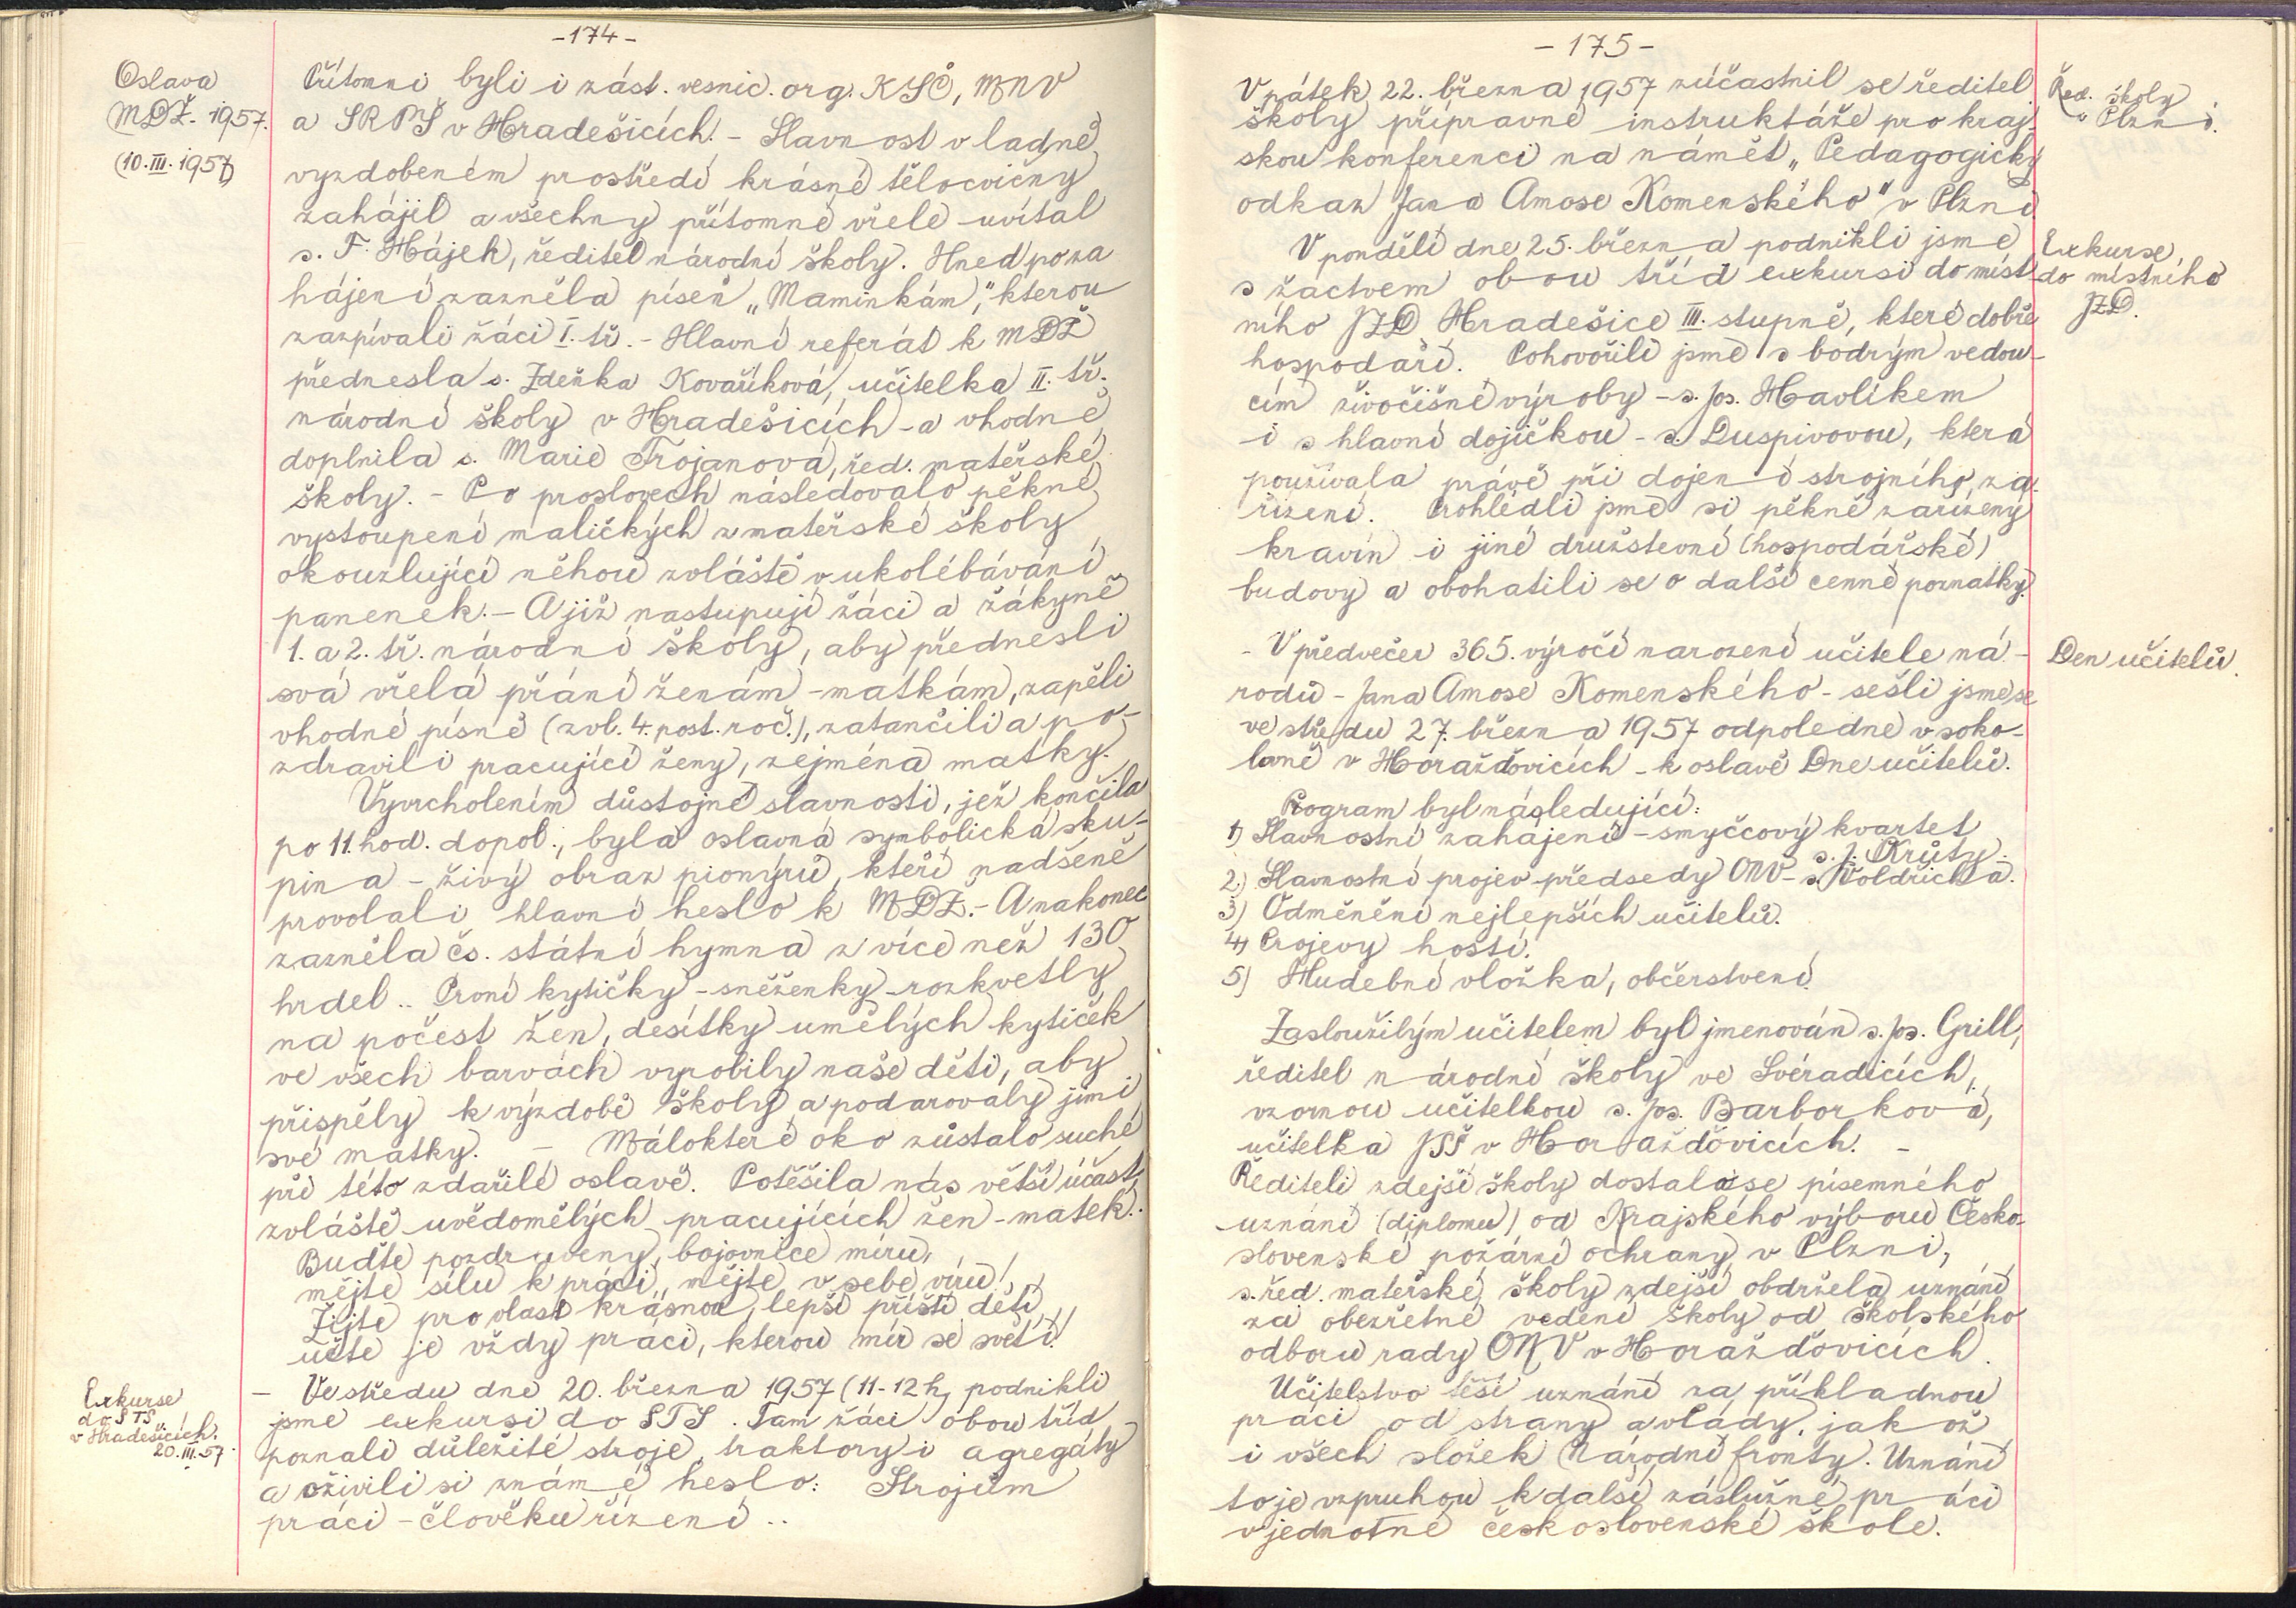 -174-
Oslava
MDŽ. 1957.
(10.III.1957)
Přítomni byli i zást. vesnic. org. KSČ, MNV
a SRPŠ v Hradešicích. - Slavnost v ladně
vyzdobeném prostředí krásné tělocvičny
zahájil a všechny přítomné vřele uvítal
s. F. Hájek, ředitel národní školy. Hned po za
hájení zazněla píseň „Maminkám,“ kterou
zazpívali žáci I. tř. - Hlavní referát k MDŽ
přednesla s. Zdeňka Kovaříková, učitelka II. tř.
národní školy v Hradešicích - a vhodně
doplnila s. Marie Trojanová, řed. mateřské
školy. - Po proslovech následovalo pěkné
vystoupení maličkých z mateřské školy,
okouzlující něhou zvláště v ukolébávání
panenek. - A již nastupují žáci a žákyně
1. a 2. tř. národní školy, aby přednesli
svá vřelá přání ženám - matkám, zapěli
vhodné písně (zvl. 4. post. roč.), zatančili a po-
zdravili pracující ženy, zejména matky.
Vyvrcholením důstojné slavnosti, jež končila
po 11. hod. dopol., byla oslavná symbolická sku-
pina - živý obraz pionýrů, kteří nadšeně
provolali hlavní heslo k MDŽ. - A nakonec
zazněla čs. státní hymna z více než 130
hrdel.. První kytičky - sněženky - rozkvetly
na počest žen, desítky umělých kytiček
ve všech barvách vyrobily naše děti, aby
přispěly k výzdobě školy a podarovaly jimi
své matky. - Málokteré oko zůstalo suché
při této zdařilé oslavě. Potěšila nás větší účast,
zvláště uvědomělých pracujících žen - matek.
Buďte pozdraveny, bojovnice míru,
mějte sílu k práci, mějte v sebe víru!
Žijte pro vlast krásnou, lepší příští dětí,
učte je vždy práci, kterou mír se světí!
Exkurse
do STS
v Hradešicích.
20.III.57.
- Ve středu dne 20. března 1957 (11-12 h, podnikli
jsme exkursi do STS. Tam žáci obou tříd
poznali důležité stroje, traktory i agregáty
a oživili si známé heslo: Strojům
práci - člověku řízení..
-175-
V pátek 22. března 1957 zúčastnil se ředitel
školy přípravné instruktáže pro kraj-
skou konferenci na námět „Pedagogický
odkaz Jana Amose Komenského“ v Plzni.
Řed. školy
v Plzni.
V pondělí dne 25. března podnikli jsme
s žactvem obou tříd exkursi do míst
ního JZD Hradešice III. stupně, které dobře
hospodaří. Pohovořili jsme s bodrým vedou-
cím živočišné výroby - s. Jos. Havlíkem
i s hlavní dojičkou - s. Duspivovou, která
používala právě při dojení strojního za-
řízení. Prohlédli jsme si pěkně zařízený
kravín i jiné družstevní (hospodářské)
budovy a obohatili se o další cenné poznatky.
Exkurse
do místního
JZD.
- V předvečer 365. výročí narození učitele ná-
rodů - Jana Amose Komenského - sešli jsme se
ve středu 27. března 1957 odpoledne v soko-
lovně v Horažďovicích - k oslavě Dne učitelů.
Den učitelů.
Program byl následující:
1) Slavnostní zahájení - smyčcový kvartet
s. J. Krůty.
2.) Slavnostní projev předsedy ONV - s. Voldřicha.
3) Odměnění nejlepších učitelů.
4) Projevy hostí.
5) Hudební vložka, občerstvení.
Zasloužilým učitelem byl jmenován s. Jos. Grill,
ředitel národní školy ve Svéradicích,
vzornou učitelkou s. Jos. Barborková,
učitelka JSŠ v Horažďovicích. -
Řediteli zdejší školy dostalo se písemného
uznání (diplomu) od Krajského výboru Česko-
slovenské požární ochrany v Plzni,
s. řed. mateřské školy zdejší obdržela uznání
za obezřetné vedení školy od školského
odboru rady ONV v Horažďovicích.
Učitelstvo těší uznání za příkladnou
práci od strany a vlády, jakož
i všech složek Národní fronty. Uznání
to je vzpruhou k další záslužné práci
v jednotné československé škole.